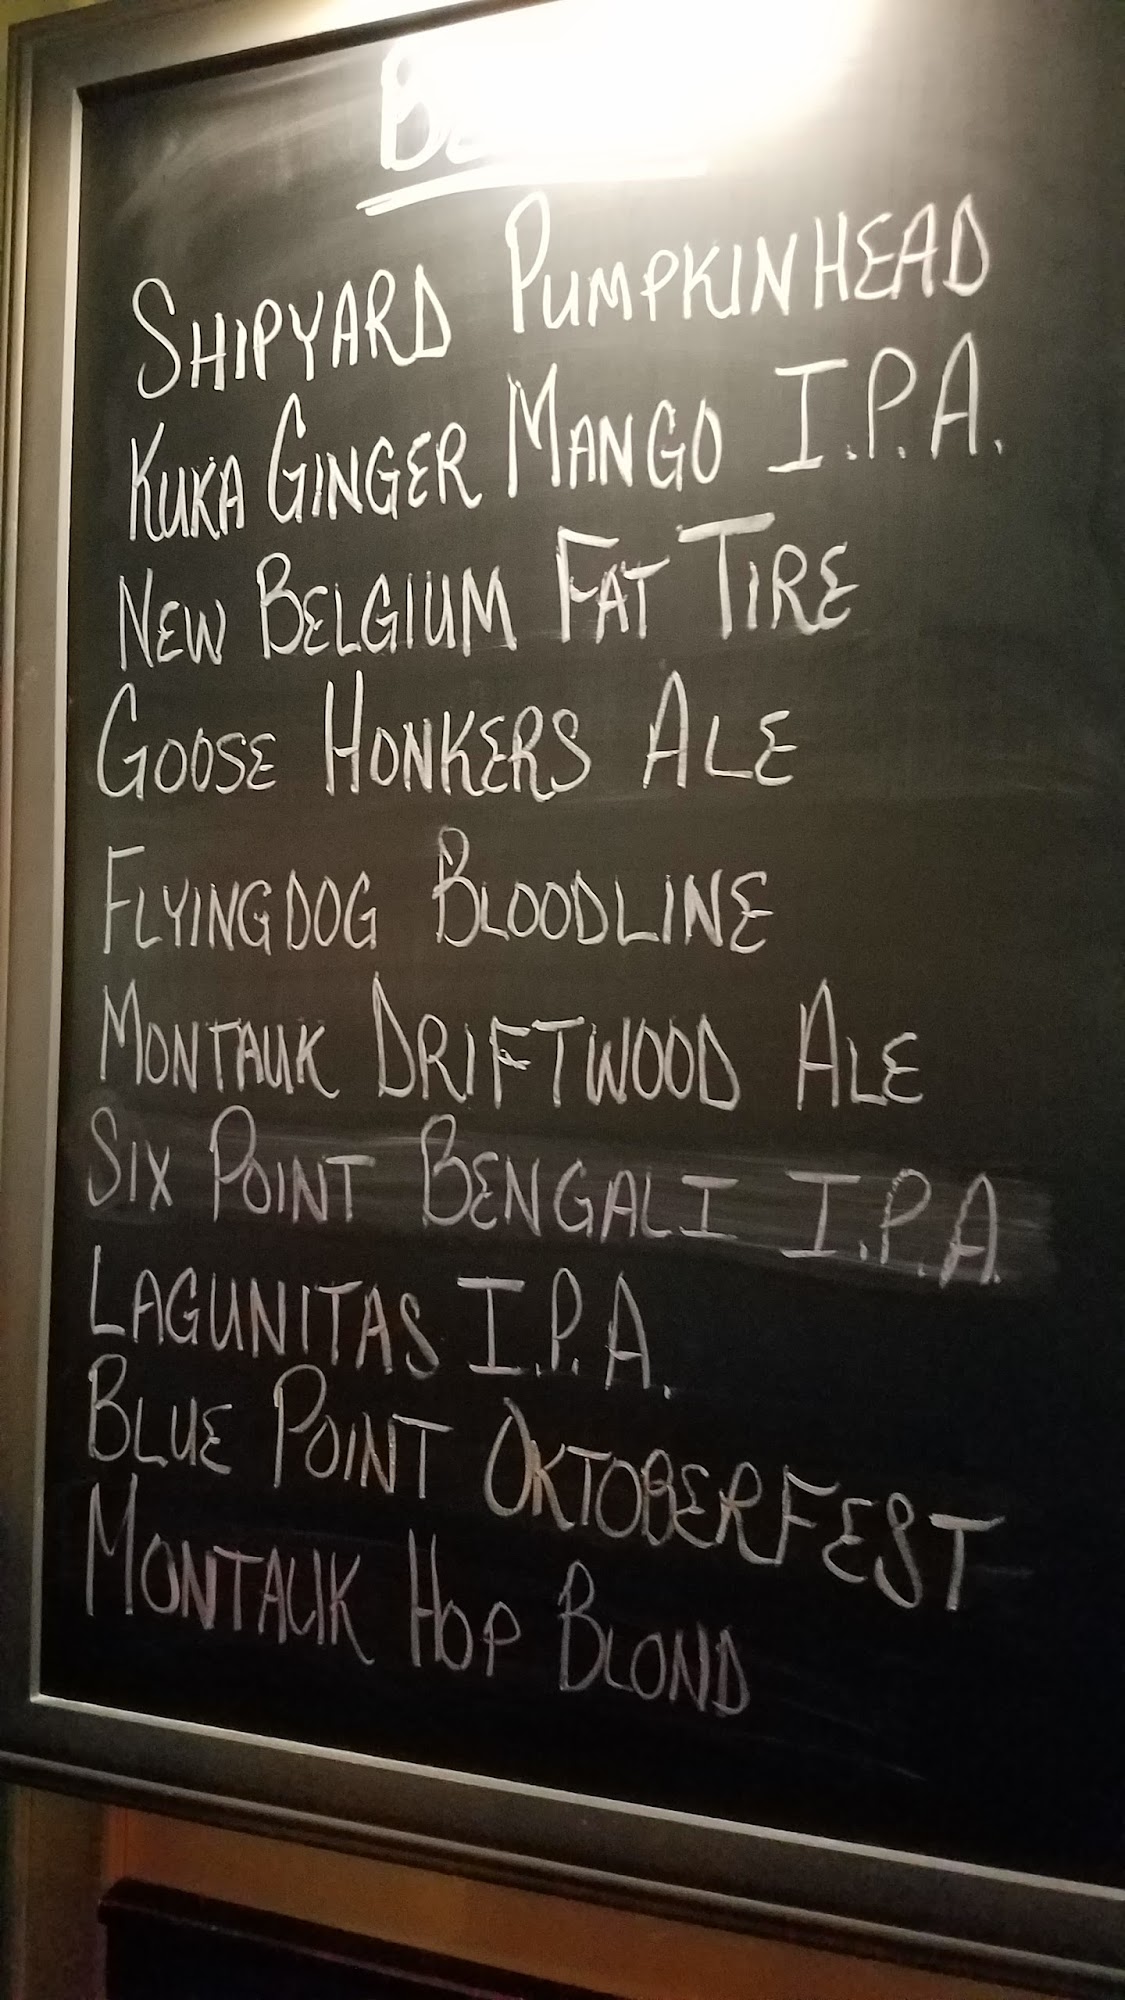 SHIPYARD PUMPKINHEAD
KUKA GINGER MANGO I.P.A.
NEW BELGIUM FAT TIRE
GOOSE HONKERS ALE
FLYINGDOG BLOODLINE
MONTAUK DRIFTWOOD ALE
SIX POINT BENGALI I.P.A.
LAGUNITAS I.P.A.
BLUE POINT OKTOBERFEST
MONTAUK HOP BLOND